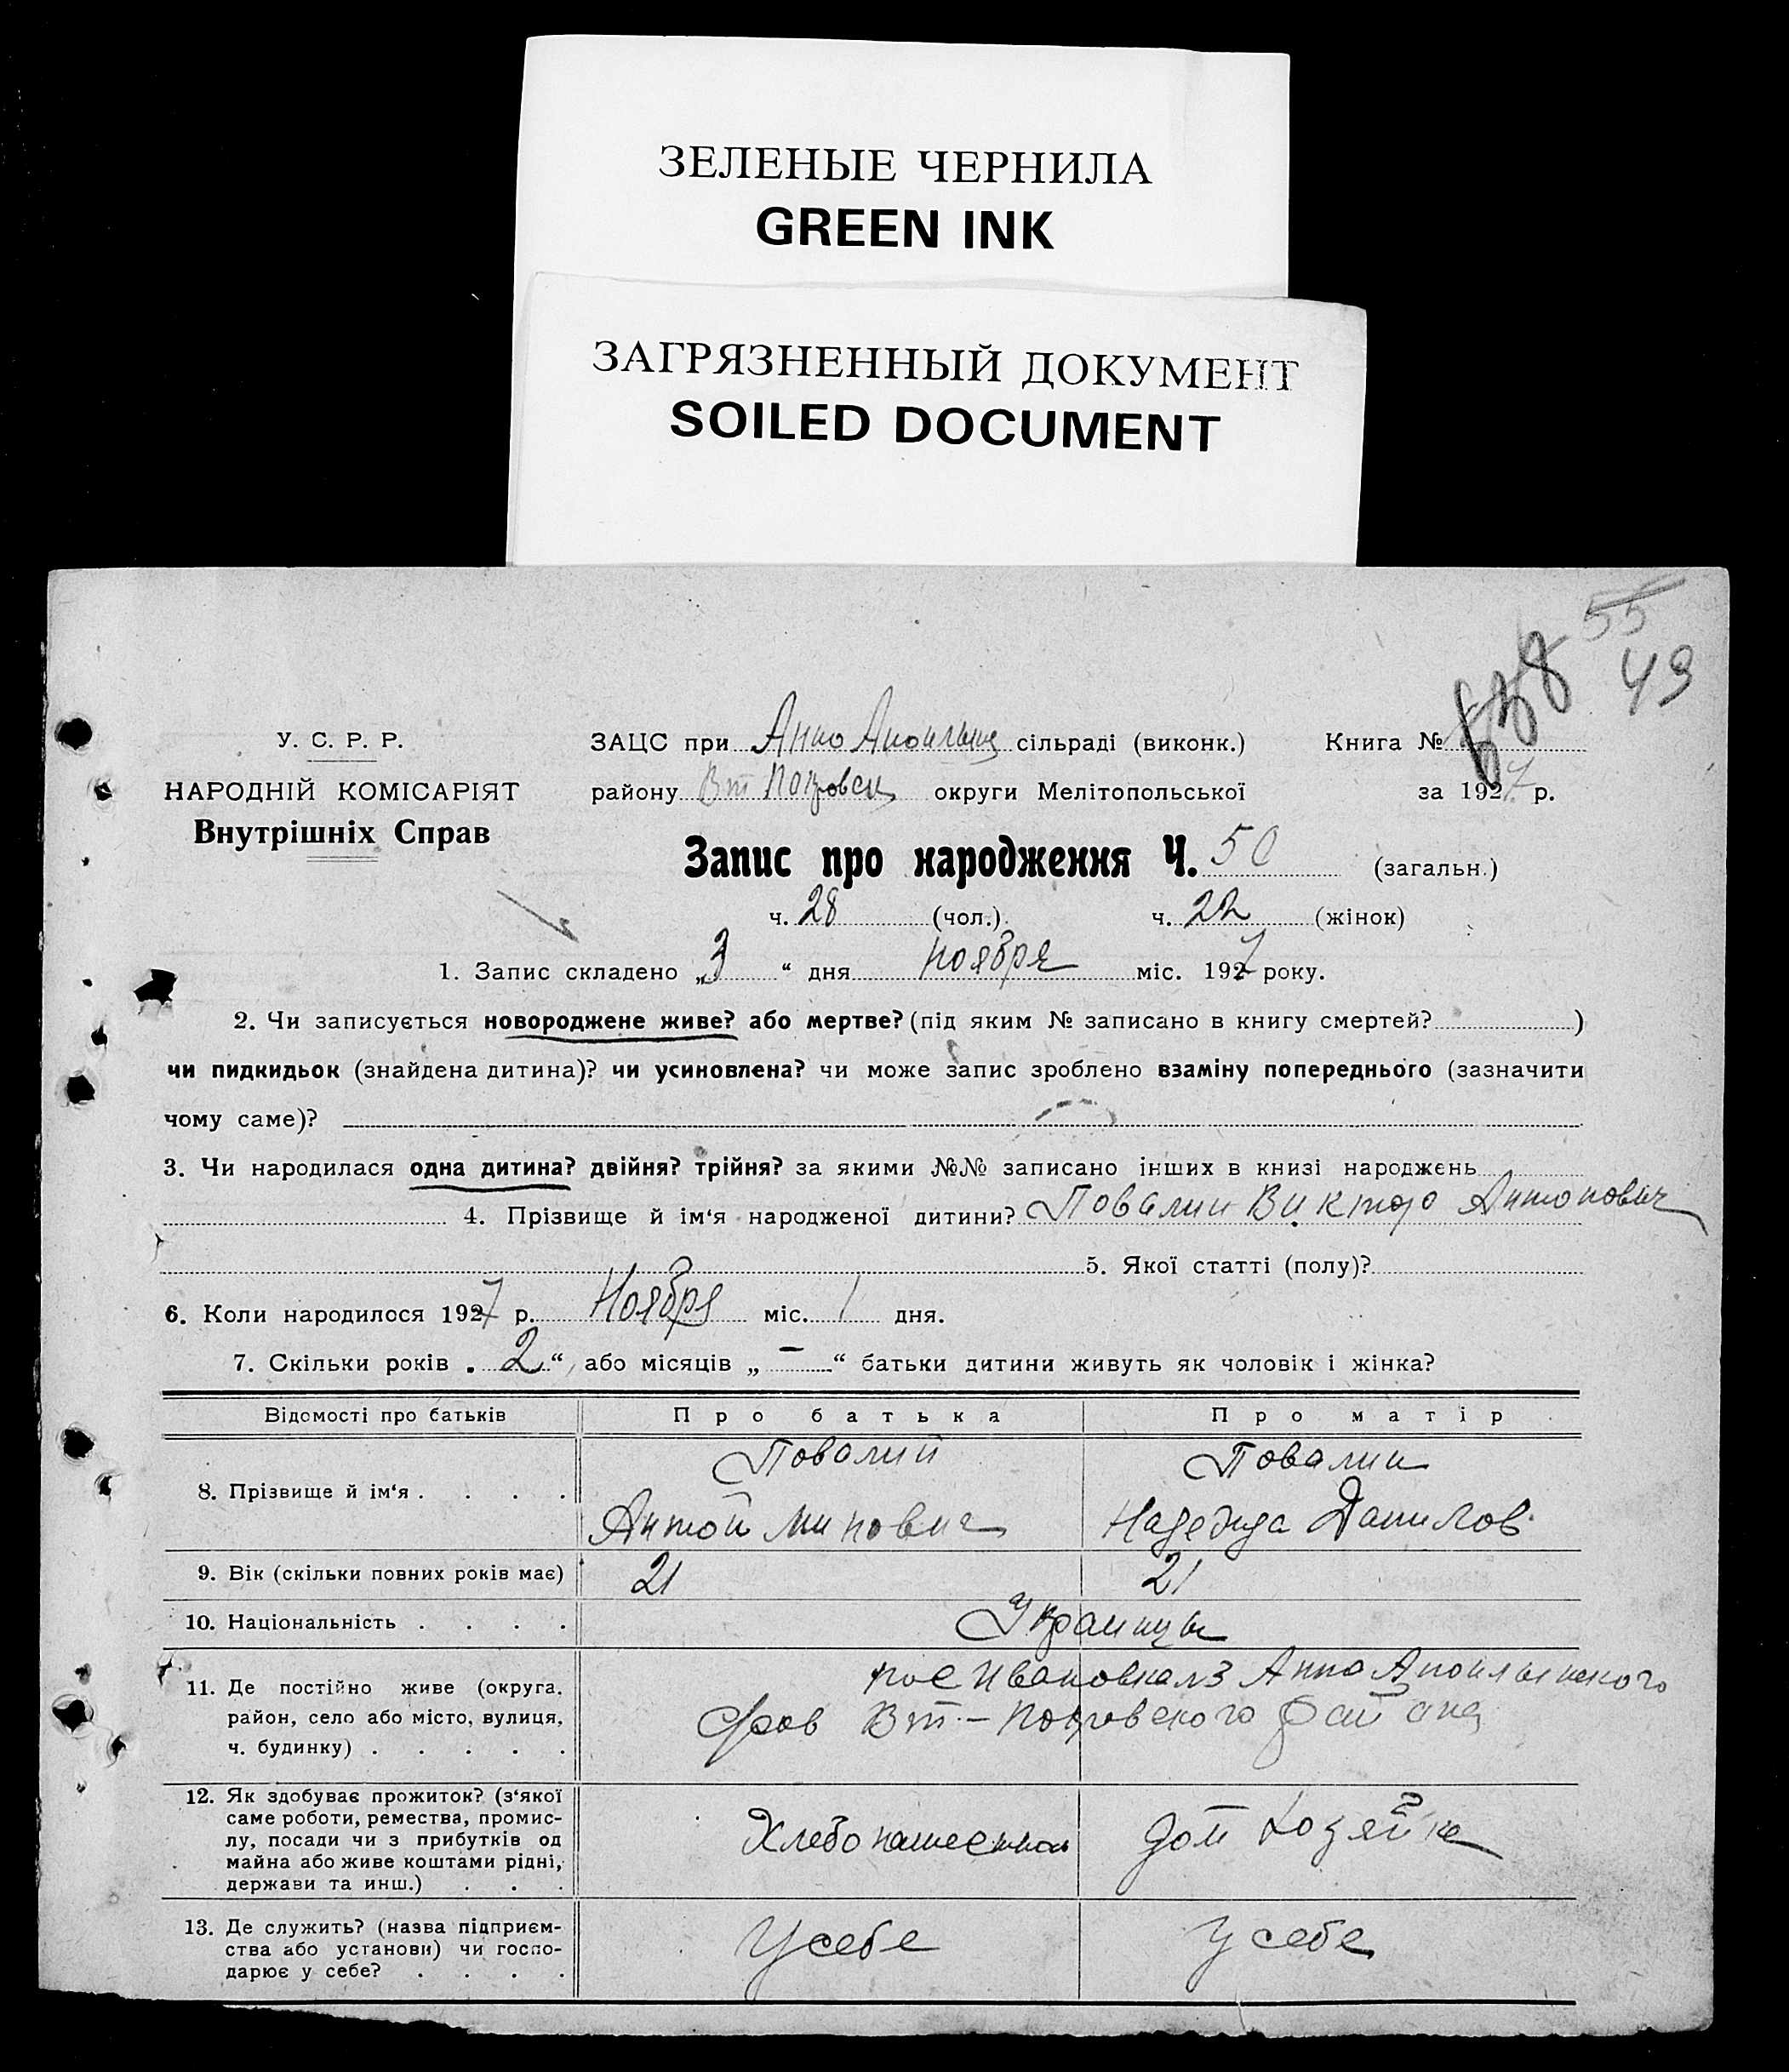 ЗЕЛЕНЫЕ ЧЕРНИЛА
GREEN INK
ЗАГРЯЗНЕННЫЙ ДОКУМЕНТ
SOILED DOCUMENT
55
49
У. С. Р. Р.
НАРОДНІЙ КОМІСАРІЯТ
Внутрішніх Справ
ЗАЦС при Анно сільраді (виконк.) Книга №
району Вт Покровск округи Мелітопольської за 1927 р.
Запис про народження Ч. 50 (загальн.)
ч. 28 (чол.) ч. 22 (жінок)
1. Запис складено „3 “ дня ноября міс. 1927 року.
2. Чи записується новороджене живе? або мертве? (під яким № записано в книгу смертей? )
чи пидкидьок (знайдена дитина)? чи усиновлена? чи може запис зроблено взаміну попереднього (зазначити
чому саме)?
3. Чи народилася одна дитина? двійня? трійня? за якими №№ записано інших в книзі народжень
4. Прізвище й ім‘я народженої дитини? Повалии Виктор Антонович
5. Якої статті (полу)?
6. Коли народилося 1927 р. Ноября міс. 1 дня.
7. Скільки років „2“, або місяців „–“ батьки дитини живуть як чоловік і жінка?
Відомості про батьків Про батька Про матір
8. Прізвище й ім‘я . . . .
Повалий
Антон Минович
Повалии
Надежда Данилов.
9. Вік (скільки повних років має) 21 21
10. Національність . . . . Украинцы
11. Де постійно живе (округа,
район, село або місто, вулиця,
ч. будинку) . . . . .
пос Ивановка Анно
Вт.–Покровского района
12. Як здобуває прожиток? (з‘якої
саме роботи, ремества, промис-
лу, посади чи з прибутків од
майна або живе коштами рідні,
держави та инш.) . . .
Хлебопашество
Дом хозяйка
13. Де служить? (назва підприєм-
ства або установи) чи госпо-
дарює у себе? . . . .
У себе
У себе